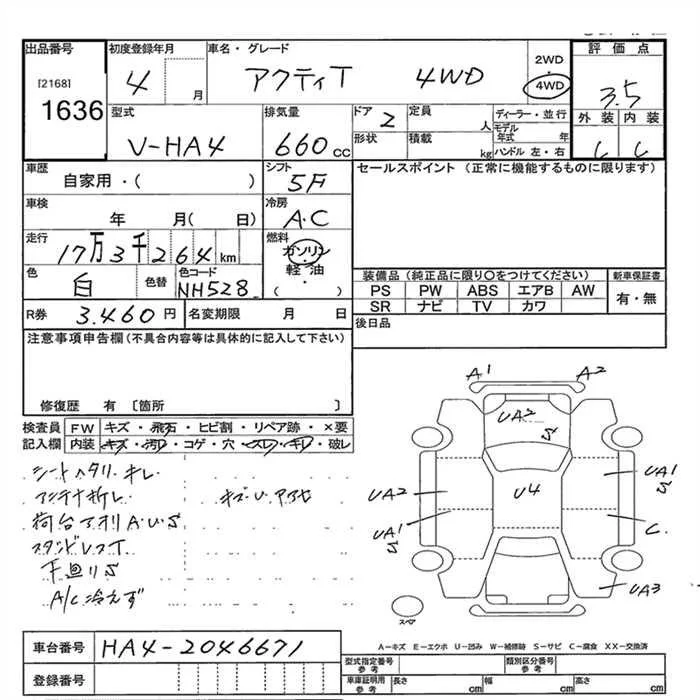 出品番号
[2168]
1636
初度登録年月
4 月
車名・グレード
アクティT 4WD
2WD
4WD
評価点
3.5
外装 内装
C C
型式
V-HA4
排気量
660 cc
ドア 2
定員 人
形状
積載 kg
ディーラー・並行
モデル年式 年
ハンドル 左・右
車歴
自家用・( )
シフト
5F
セールスポイント (正常に機能するものに限ります)
車検
年 月( 日)
冷房
A・C
走行
17万3千264km
燃料
ガソリン
軽・油
( ・ )
色
白
色替
色コード
NH528
装備品(純正品に限り○をつけてください)
PS PW ABS エアB AW
SR ナビ TV カワ
新車保証書
有・無
R券 3.460円
名変期限 月 日
後日品
注意事項申告欄(不具合内容等は具体的に記入して下さい)
修復歴 有〔箇所 〕
検査員記入欄
FW キズ・飛石・ヒビ割・リペア跡・×要
内装 キズ・汚レ・コゲ・穴・スレ・キレ・破レ
シートヘタリ キレ
アンテナ折レ
荷台アオリA.U.S
下廻りS
A/C冷えず
A1 A2
UA2
S
UA2
U4
UA1
S
UA1
S
C
UA3
スペア
A-キズ E-エクボ U-凹み W-補修跡 S-サビ C-腐食 XX-交換済
車台番号
HA4-2046671
登録番号
型式指定番号
参考
類別区分番号
参考
車庫証明用
参考
長さ cm
幅 cm
高さ cm